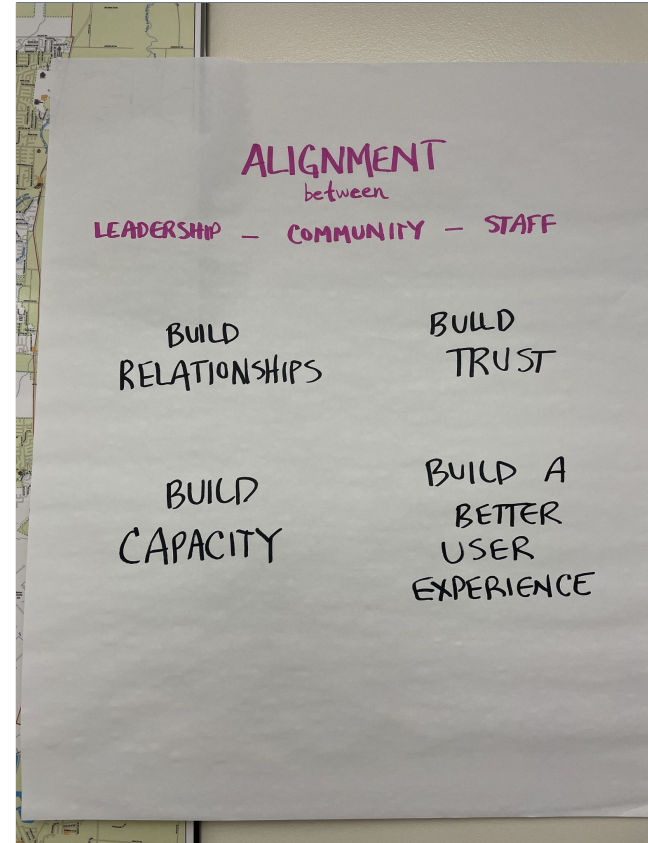 ALIGNMENT
between
LEADERSHIP – COMMUNITY – STAFF
BUILD
RELATIONSHIPS
BUILD
TRUST
BUILD
CAPACITY
BUILD A
BETTER
USER
EXPERIENCE